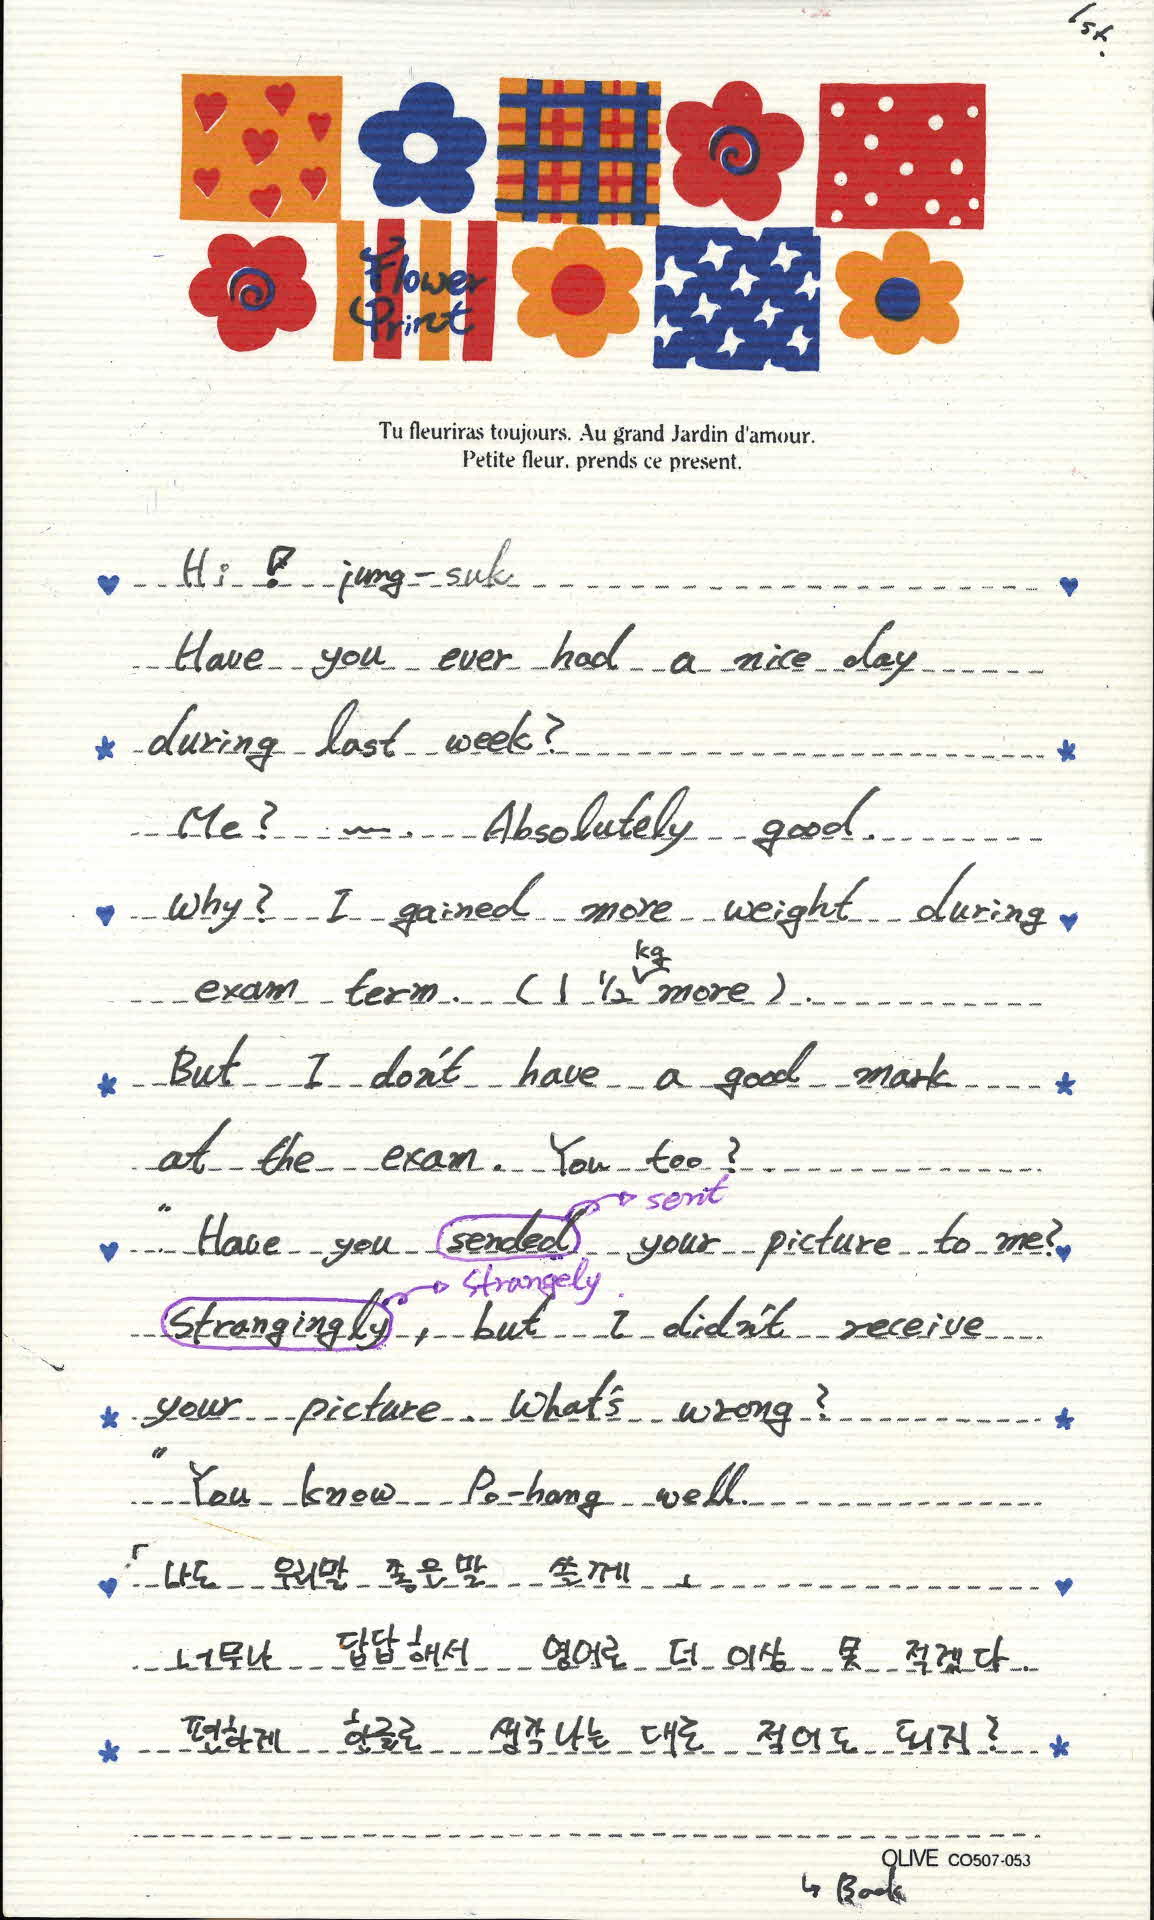 1st.
Flower
Print
Tu fleuriras toujours. Au grand Jardin d'amour.
Petite fleur. prends ce present.
Hi! jung-suk
Have you ever had a nice day
during last week?
Me? ~. Absolutely good.
Why? I gained more weight during
kg
exam term. (1 1/2 ✓ more).
But I don't have a good mark
at the exam. You too?
→ sent
" Have you sended your picture to me?
→ strangely.
Strangingly, but I didn't receive
your picture. What's wrong?
" You know Po-hang well.
「나도 우리말 좋은말 쓸께」
너무나 답답해서 영어로 더 이상 못 적겠다.
편하게 한글로 생각나는 대로 적어도 되지?
OLIVE CO507-053
↳ Back